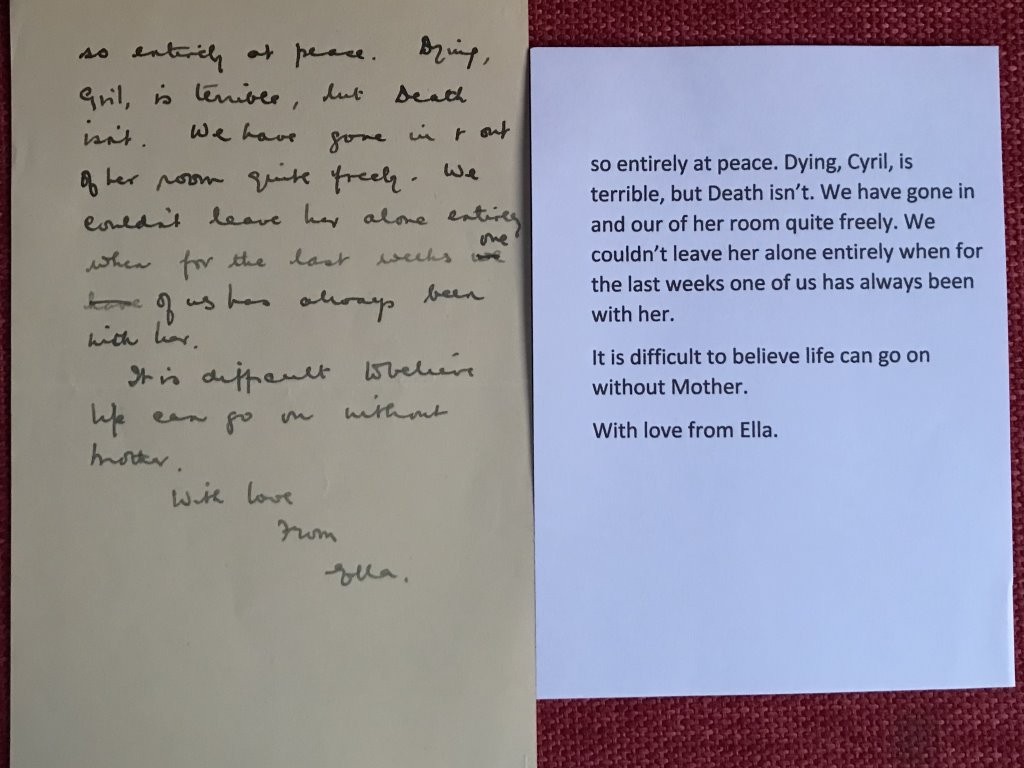 so entirely at peace. Dying,
Cyril, is terrible, but Death
isn't. We have gone in & out
of her room quite freely. We
couldn't leave her alone entirely
when for the last weeks we one
have of us has always been
with her.
It is difficult to believe
life can go on without
mother.
With love
From
Ella.
so entirely at peace. Dying, Cyril, is
terrible, but Death isn't. We have gone in
and our of her room quite freely. We
couldn't leave her alone entirely when for
the last weeks one of us has always been
with her.
It is difficult to believe life can go on
without Mother.
With love from Ella.